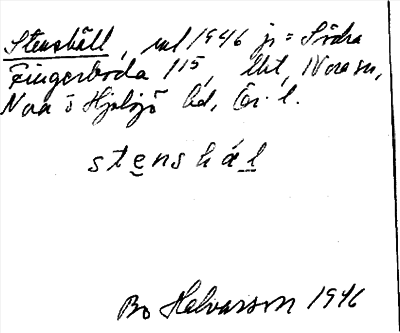 Stenshäll, ml 1946 js = Södra
Fingerboda 1¹⁵, Uht, Nora sn,
Nora o Hjulsjö bd, Ör. l.
stenshàl
Bo Helvarson 1946